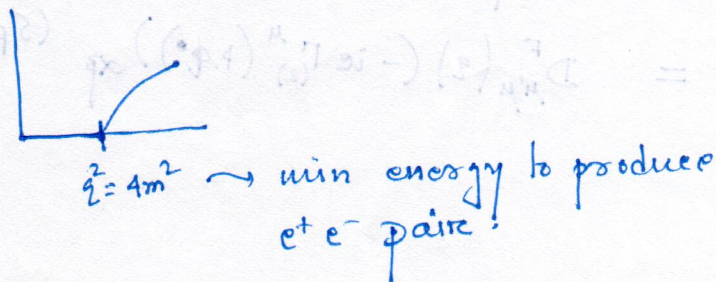 q² = 4m² → min energy to produce
e⁺ e⁻ pair!